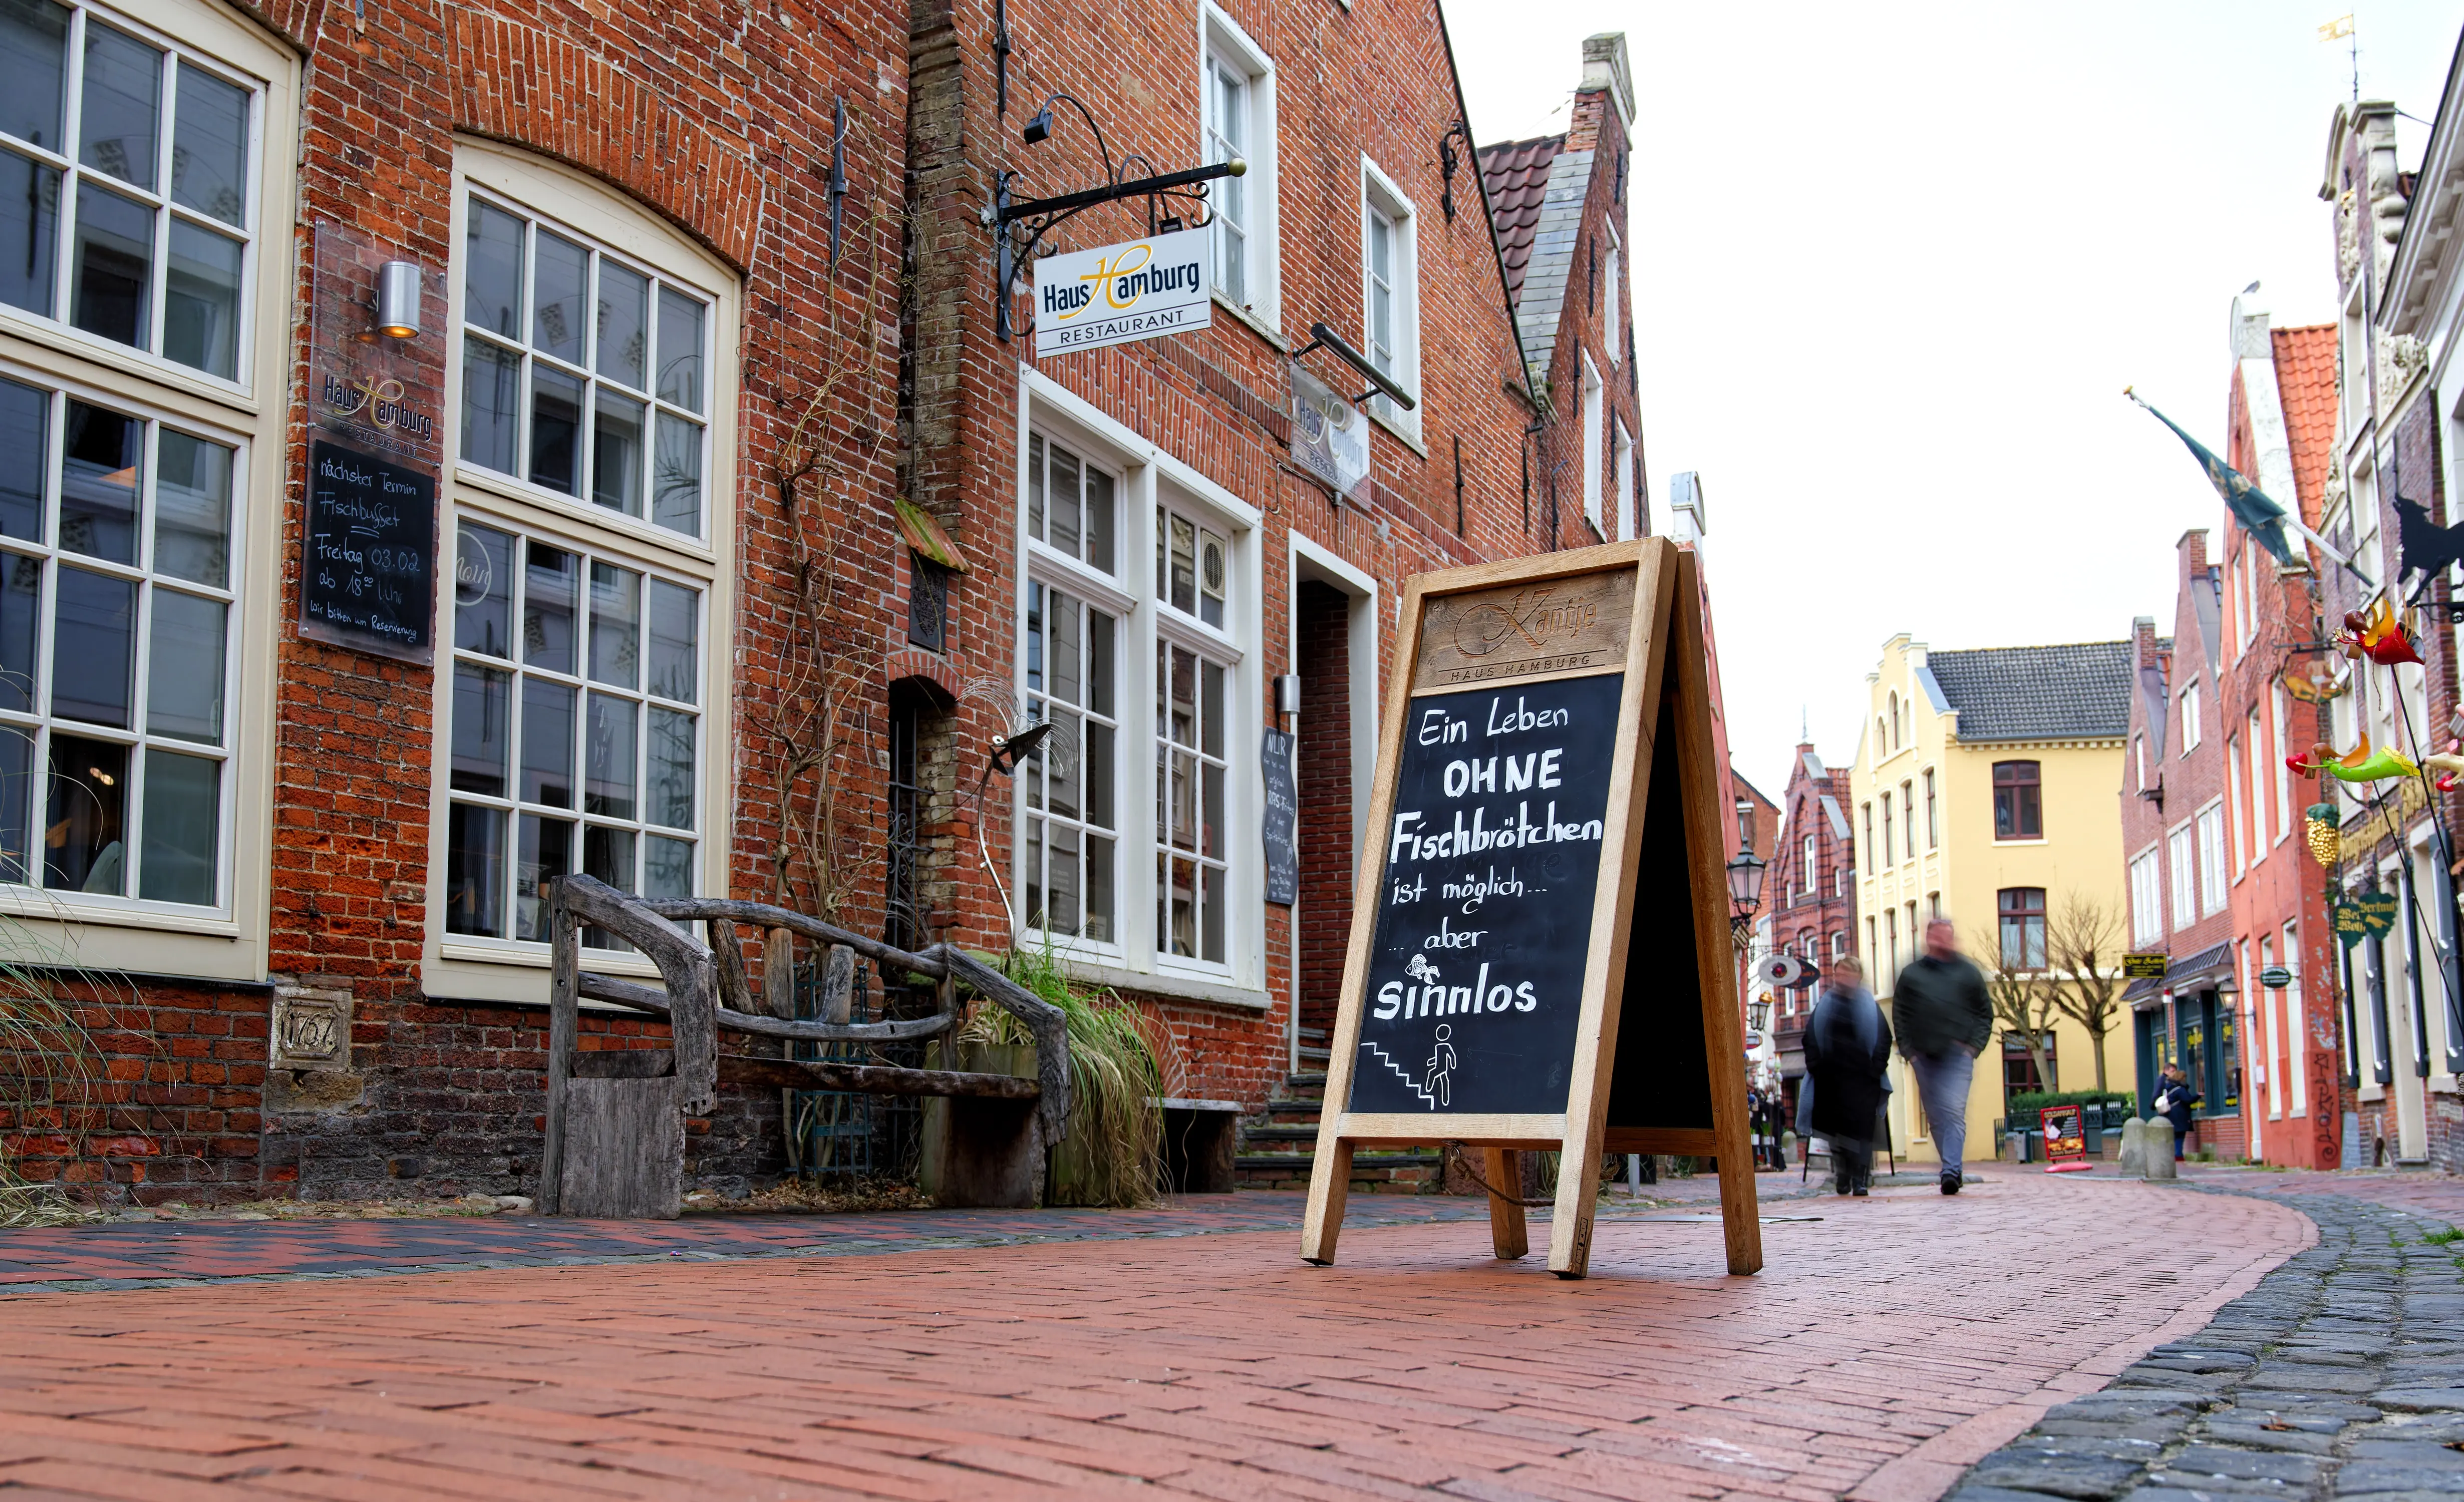 Haus Hamburg
RESTAURANT
Haus Hamburg
RESTAURANT
nächster Termin
Fischbuffet
Freitag 03.02
ab 18⁰⁰ Uhr
wir bitten um Reservierung
Moin
1767
Haus Hamburg
NUR
Kantje
HAUS HAMBURG
Ein Leben
OHNE
Fischbrötchen
ist möglich...
... aber
sinnlos